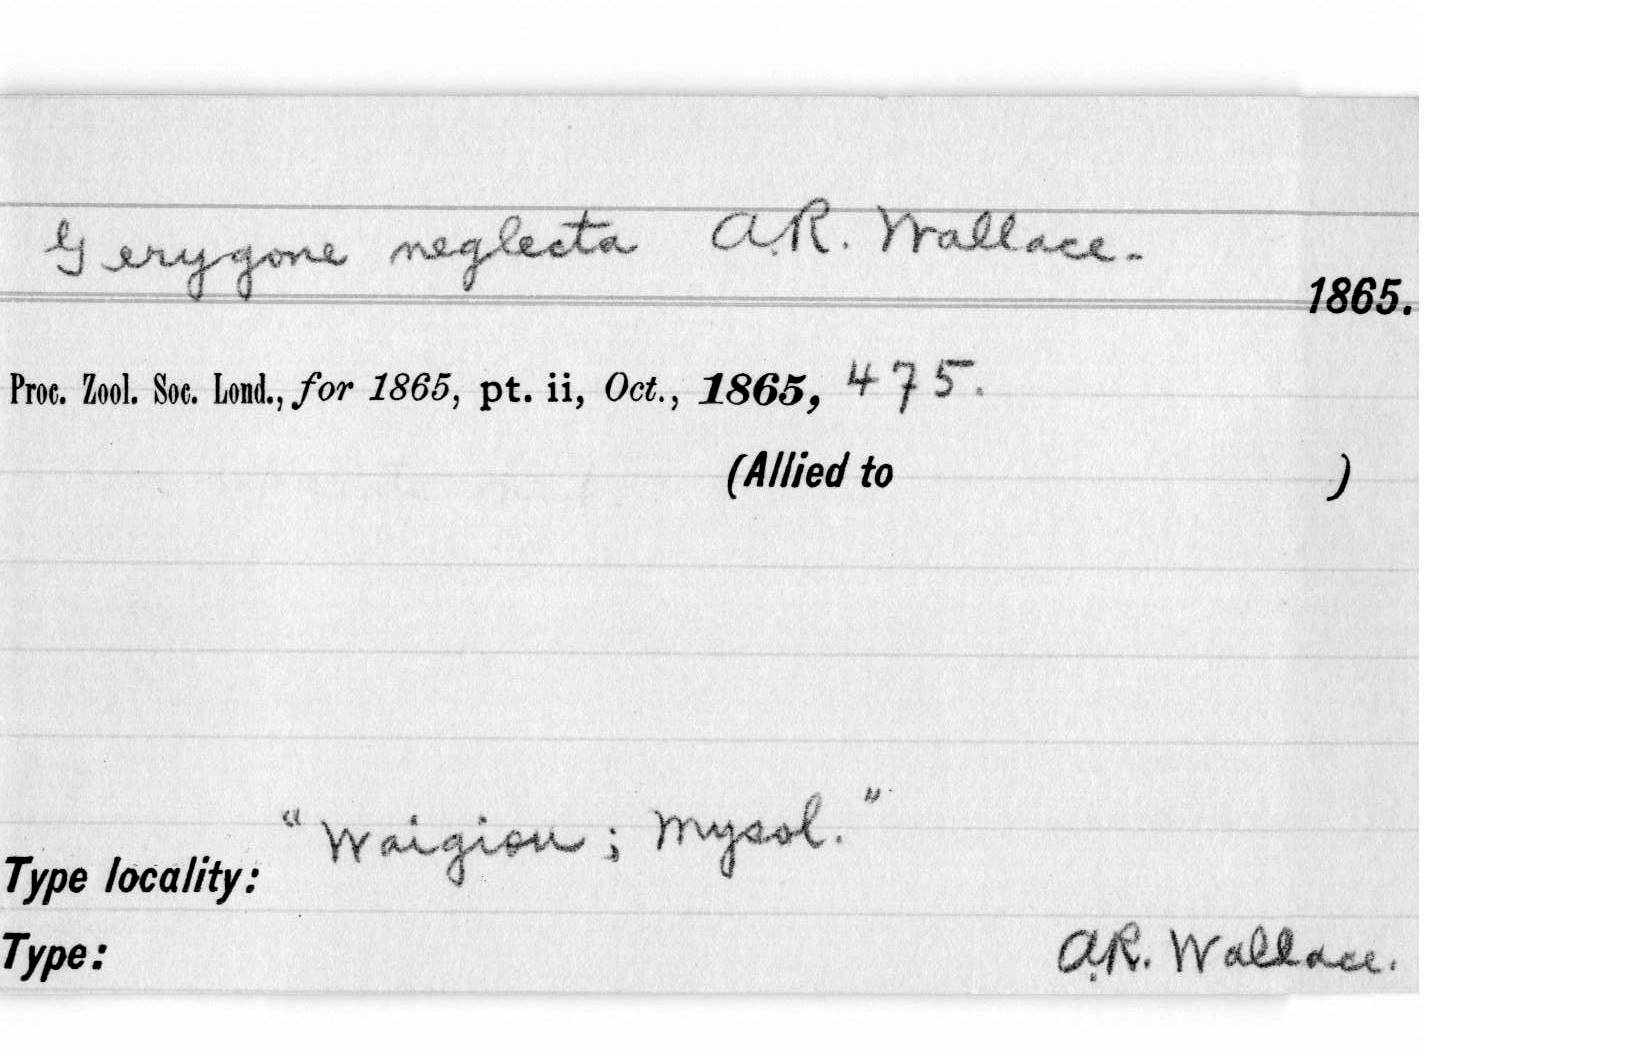 Gerygone neglecta A.R. Wallace.
1865.
Proc. Zool. Soc. Lond., for 1865, pt. ii, Oct., 1865, 475.
(Allied to )
"Waigiou; Mysol."
Type locality:
Type: A.R. Wallace.